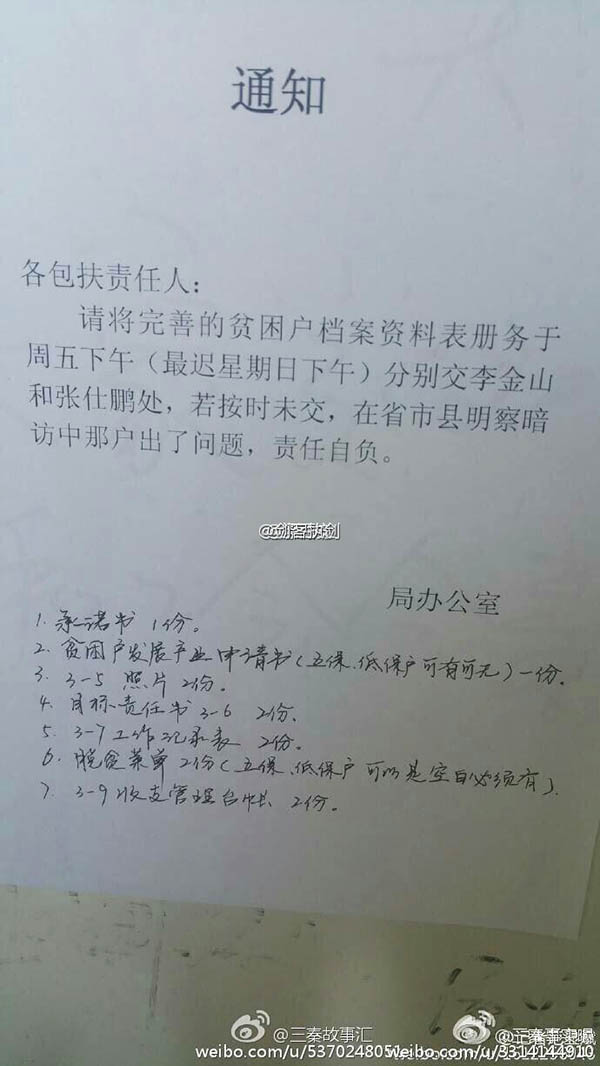 通知
各包扶责任人：
请将完善的贫困户档案资料表册务于
周五下午（最迟星期日下午）分别交李金山
和张仕鹏处，若按时未交，在省市县明察暗
访中那户出了问题，责任自负。
局办公室
1. 承诺书 1份。
2. 贫困户发展产业申请书（五保、低保户可有可无）一份。
3. 3-5 照片 2份。
4. 目标责任书 3-6 2份.
5. 3-7工作记录表 2份。
6. 脱贫菜单 2份（五保、低保户可以是空白必须有）.
7. 3-9收支管理台帐 2份。
@三秦故事汇
weibo.com/u/5370248051
weibo.com/u/3314144910